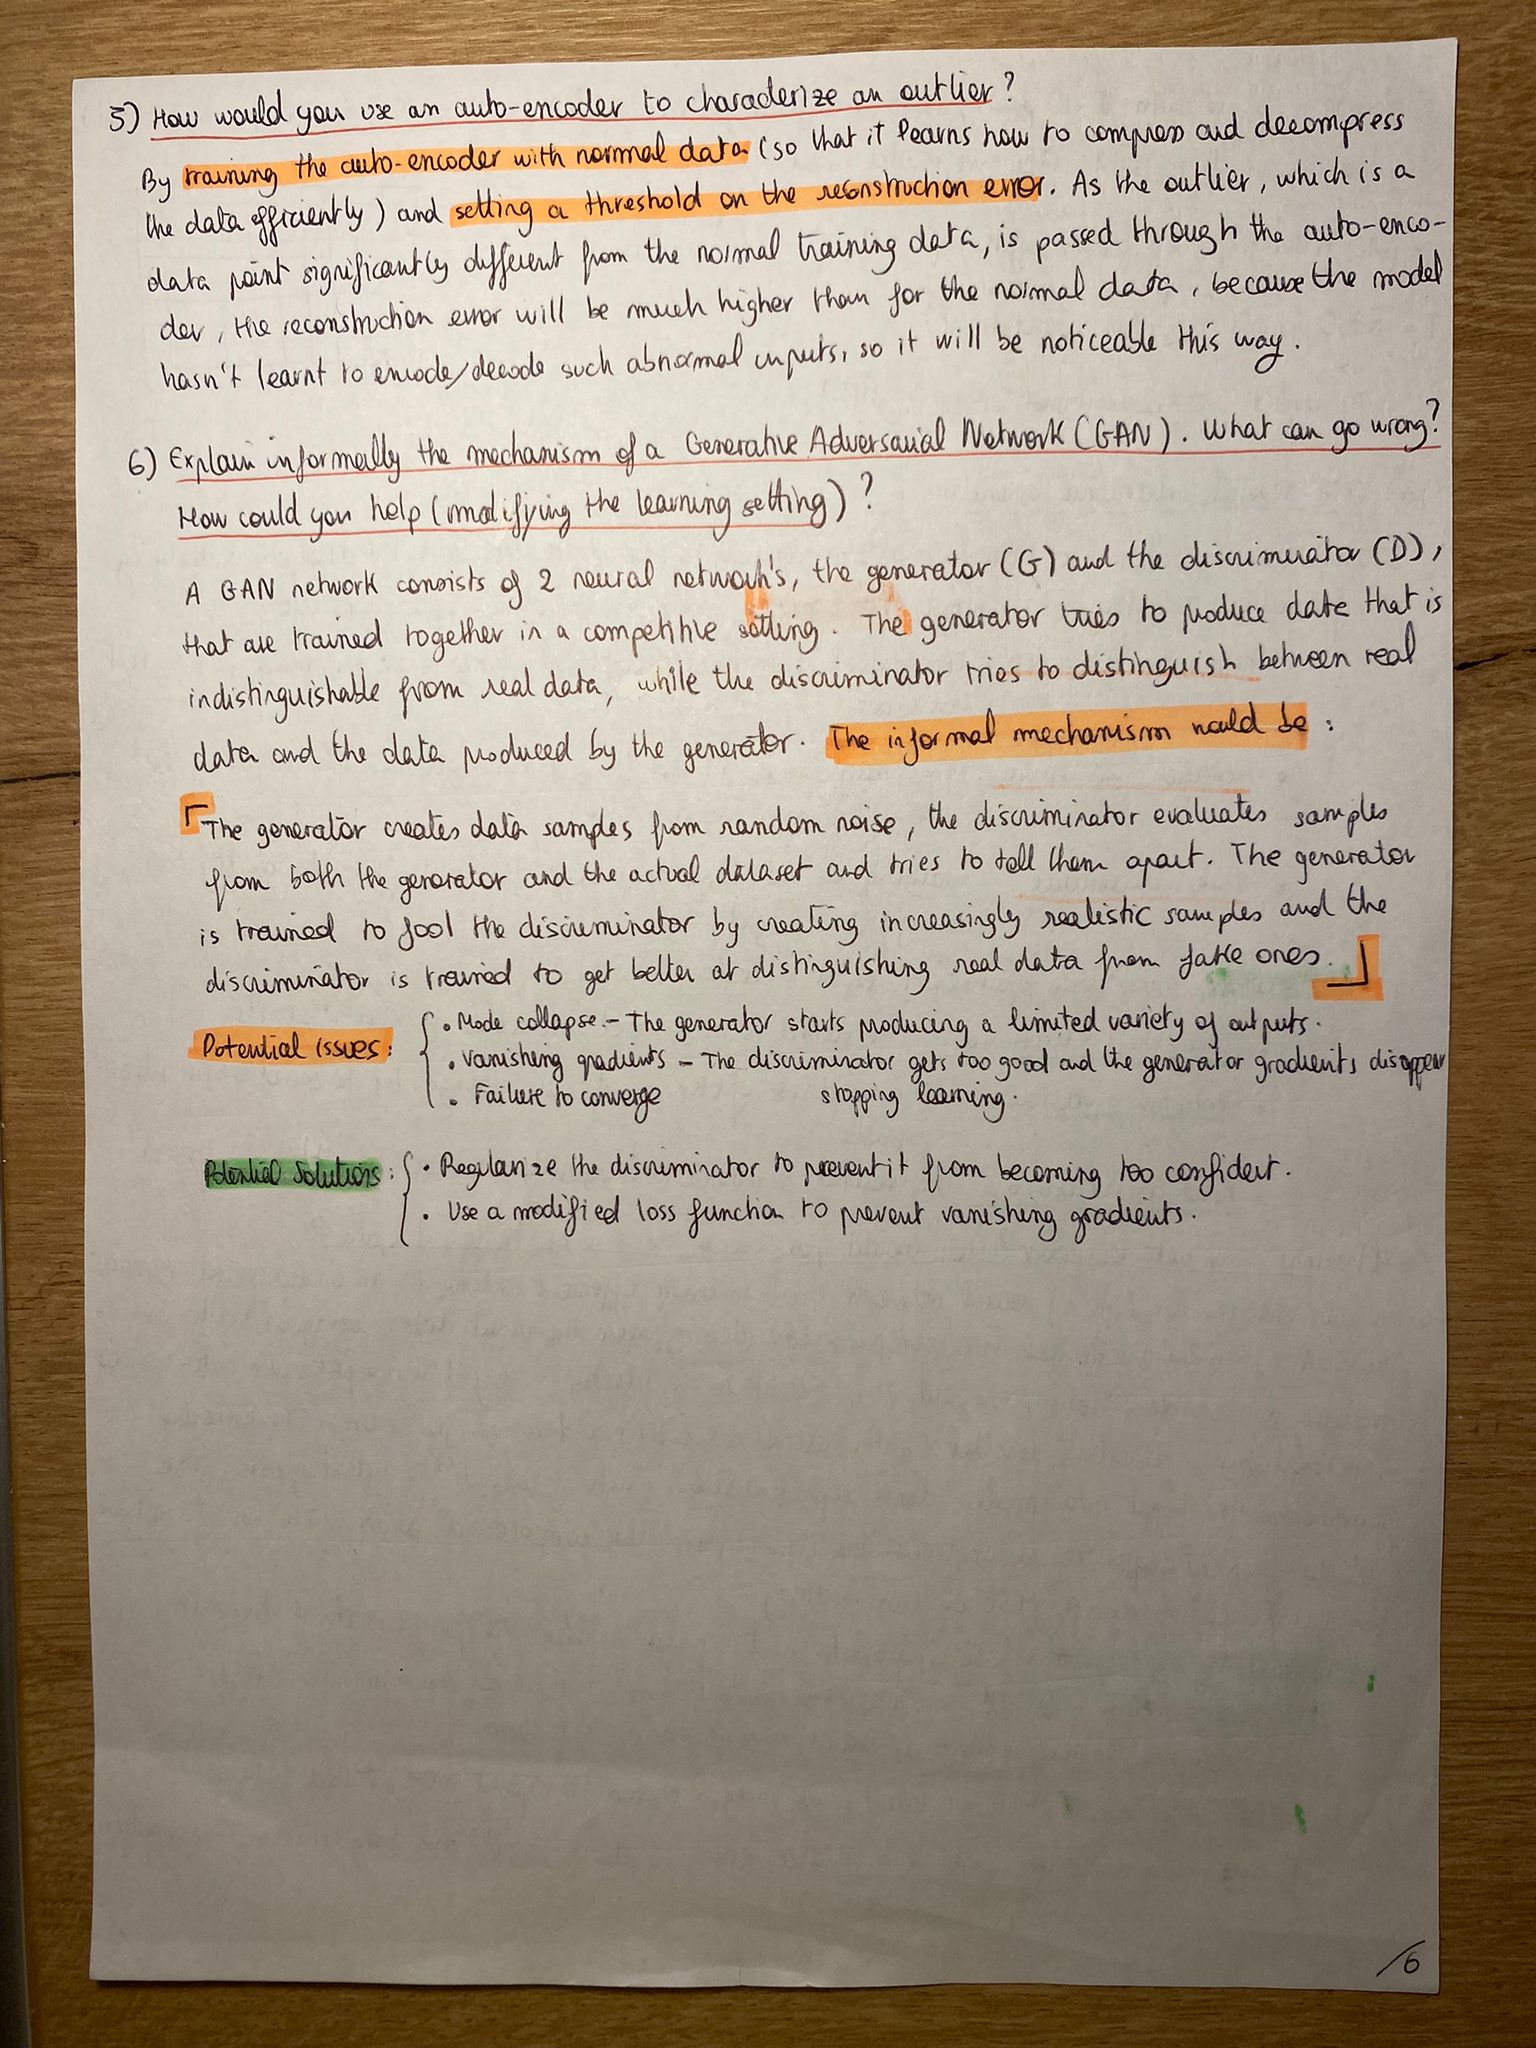 5) How would you use an auto-encoder to characterize an outlier?
By training the auto-encoder with normal data (so that it learns how to compress and decompress
the data efficiently) and setting a threshold on the reconstruction error. As the outlier, which is a
data point significantly different from the normal training data, is passed through the auto-enco-
der, the reconstruction error will be much higher than for the normal data, because the model
hasn't learnt to encode/decode such abnormal inputs, so it will be noticeable this way.
6) Explain informally the mechanism of a Generative Adversarial Network (GAN). What can go wrong?
How could you help (modifying the learning setting)?
A GAN network consists of 2 neural network's, the generator (G) and the discriminator (D),
that are trained together in a competitive setting. The generator tries to produce data that is
indistinguishable from real data, while the discriminator tries to distinguish between real
data and the data produced by the generator. The informal mechanism would be:
The generator creates data samples from random noise, the discriminator evaluates samples
from both the generator and the actual dataset and tries to tell them apart. The generator
is trained to fool the discriminator by creating increasingly realistic samples and the
discriminator is trained to get better at distinguishing real data from fake ones.
Potential issues: • Mode collapse - The generator starts producing a limited variety of outputs.
• Vanishing gradients - The discriminator gets too good and the generator gradients disappear
stopping learning.
• Failure to converge
Potential Solutions: • Regularize the discriminator to prevent it from becoming too confident.
• Use a modified loss function to prevent vanishing gradients.
/6